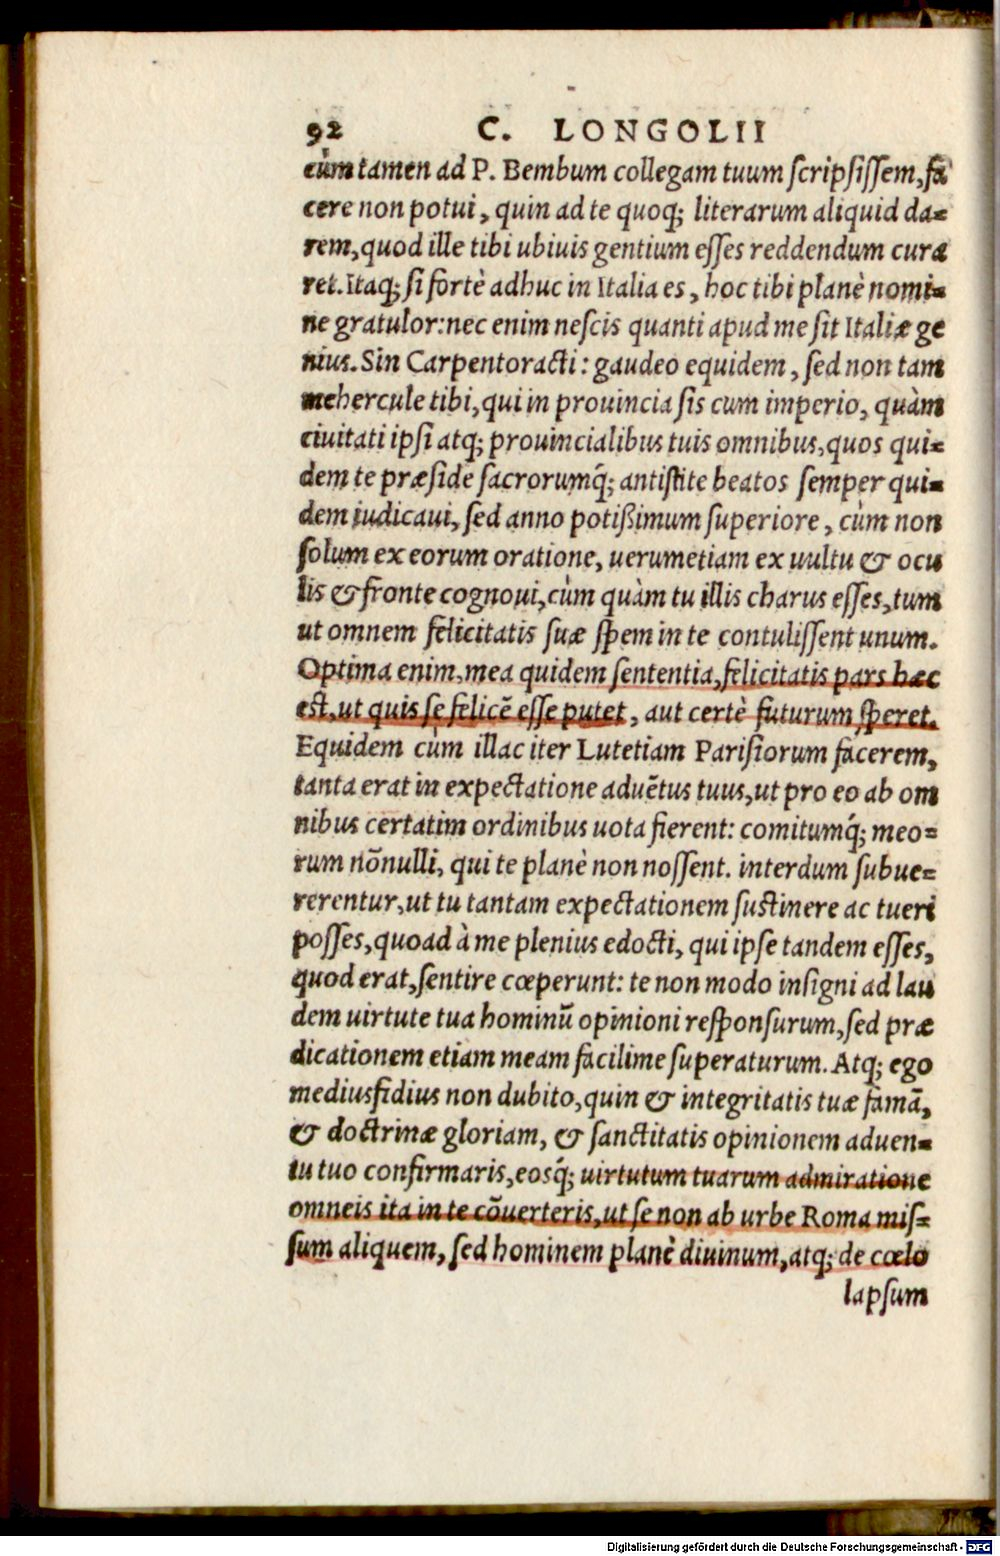 92 C. LONGOLII
cùm tamen ad P. Bembum collegam tuum ſcripſiſſem, fa
cere non potui, quin ad te quoq; literarum aliquid da-
rem, quod ille tibi ubiuis gentium eſſes reddendum cura
ret. Itaq; ſi fortè adhuc in Italia es, hoc tibi planè nomi-
ne gratulor: nec enim neſcis quanti apud me ſit Italiæ ge
nius. Sin Carpentoracti: gaudeo equidem, ſed non tam
mehercule tibi, qui in prouincia ſis cum imperio, quàm
ciuitati ipſi atq; prouincialibus tuis omnibus, quos qui-
dem te præſide ſacrorumq́; antiſtite beatos ſemper qui-
dem iudicaui, ſed anno potißimum ſuperiore, cùm non
ſolum ex eorum oratione, uerumetiam ex uultu & ocu
lis & fronte cognoui, cùm quàm tu illis charus eſſes, tum
ut omnem felicitatis ſuæ ſpem in te contuliſſent unum.
Optima enim, mea quidem ſententia, felicitatis pars hæc
eſt, ut quis ſe felicē eſſe putet, aut certè futurum ſperet.
Equidem cùm illac iter Lutetiam Pariſiorum facerem,
tanta erat in expectatione aduētus tuus, ut pro eo ab om
nibus certatim ordinibus uota fierent: comitumq́; meo-
rum nōnulli, qui te planè non noſſent. interdum ſubue-
rerentur, ut tu tantam expectationem ſuſtinere ac tueri
poſſes, quoad à me plenius edocti, qui ipſe tandem eſſes,
quod erat, ſentire cœperunt: te non modo inſigni ad lau
dem uirtute tua hominū opinioni reſponſurum, ſed præ
dicationem etiam meam facilime ſuperaturum. Atq; ego
mediusfidius non dubito, quin & integritatis tuæ famā,
& doctrinæ gloriam, & ſanctitatis opinionem aduen-
tu tuo confirmaris, eosq́; uirtutum tuarum admiratione
omneis ita in te cōuerteris, ut ſe non ab urbe Roma miſ-
ſum aliquem, ſed hominem planè diuinum, atq; de cœlo
lapſum
Digitalisierung gefördert durch die Deutsche Forschungsgemeinschaft - DFG